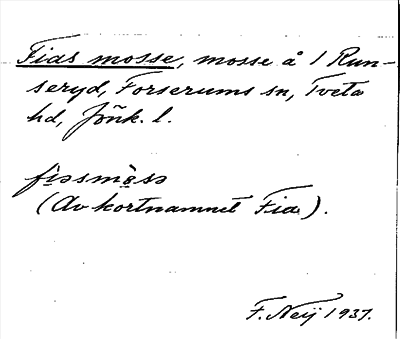 Fias mosse, mosse å 1 Run-
seryd, Forserums sn, Tveta
hd, Jönk. l.
fi̱əsmo̱sə
(Av kortnamnet Fia).
F. Neij 1937.